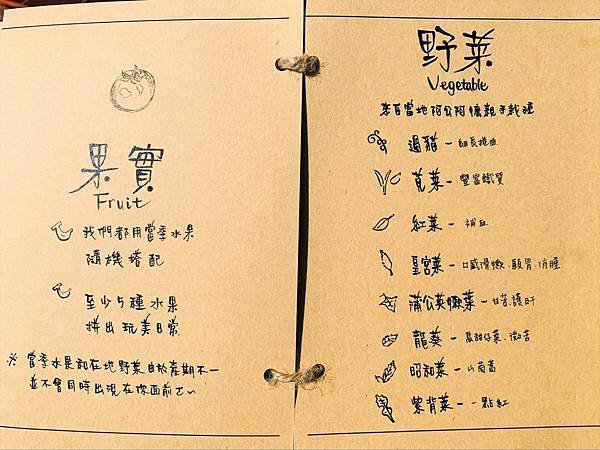 果實
Fruit
我們都用當季水果
隨機搭配
至少5種水果
拼出玩美日常
※ 當季水果和在地野菜由於產期不一
並不會同時出現在你面前ㄛ
野菜
Vegetable
來自當地阿公阿嬤親手栽種
過貓 - 細長捲曲
莧菜 - 豐富鐵質
紅菜 - 補血
皇宮菜 - 口感滑嫩、顧胃、消腫
蒲公英嫩葉 - 甘苦、護肝
龍葵 - 黑甜仔菜、微苦
昭和菜 - 山茼蒿
紫背菜 - 一點紅